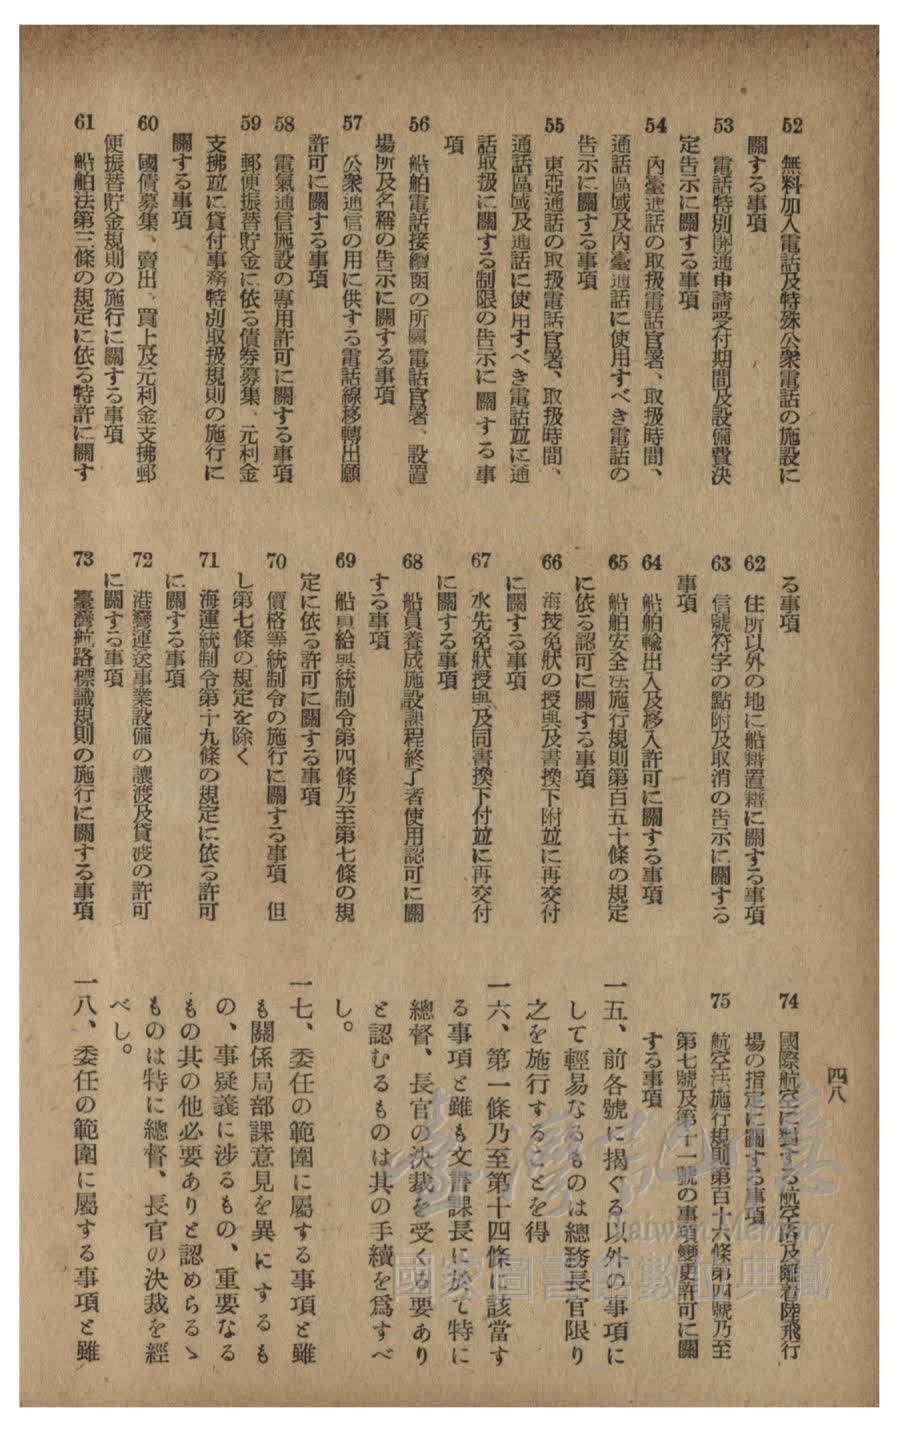 四八
52 無料加入電話及特殊公衆電話の施設に
關する事項
53 電話特別開通申請受付期間及設備費決
定告示に關する事項
54 內臺通話の取扱電話官署、取扱時間、
通話區域及內臺通話に使用すべき電話の
告示に關する事項
55 東亞通話の取扱電話官署、取扱時間、
通話區域及通話に使用すべき電話並に通
話取扱に關する制限の告示に關する事
項
56 船舶電話接續函の所屬電話官署、設置
場所及名稱の告示に關する事項
57 公衆通信の用に供する電話線移轉出願
許可に關する事項
58 電氣通信施設の專用許可に關する事項
59 郵便振替貯金に依る債券募集、元利金
支拂並に貸付事務特別取扱規則の施行に
關する事項
60 國債募集、賣出、買上及元利金支拂郵
便振替貯金規則の施行に關する事項
61 船舶法第三條の規定に依る特許に關す
る事項
62 住所以外の地に船籍置籍に關する事項
63 信號符字の點附及取消の告示に關する
事項
64 船舶輸出入及移入許可に關する事項
65 船舶安全法施行規則第百五十條の規定
に依る認可に關する事項
66 海技免狀の授與及書換下附並に再交付
に關する事項
67 水先免狀授與及同書換下付並に再交付
に關する事項
68 船員養成施設課程終了者使用認可に關
する事項
69 船員給與統制令第四條乃至第七條の規
定に依る許可に關する事項
70 價格等統制令の施行に關する事項 但
し第七條の規定を除く
71 海運統制令第十九條の規定に依る許可
に關する事項
72 港灣運送事業設備の讓渡及貸渡の許可
に關する事項
73 臺灣航路標識規則の施行に關する事項
74 國際航空に對する航空路及離着陸飛行
場の指定に關する事項
75 航空法施行規則第百十六條第四號乃至
第七號及第十一號の事項變更許可に關
する事項
一五、前各號に揭ぐる以外の事項に
して輕易なるものは總務長官限り
之を施行することを得
一六、第一條乃至第十四條に該當す
る事項と雖も文書課長に於て特に
總督、長官の決裁を受くる要あり
と認むるものは其の手續を爲すべ
し。
一七、委任の範圍に屬する事項と雖
も關係局部課意見を異にするも
の、事疑義に涉るもの、重要なる
もの其の他必要ありと認めらるゝ
ものは特に總督、長官の決裁を經
べし。
一八、委任の範圍に屬する事項と雖
臺灣記憶
Taiwan Memory
國家圖書館數位典藏